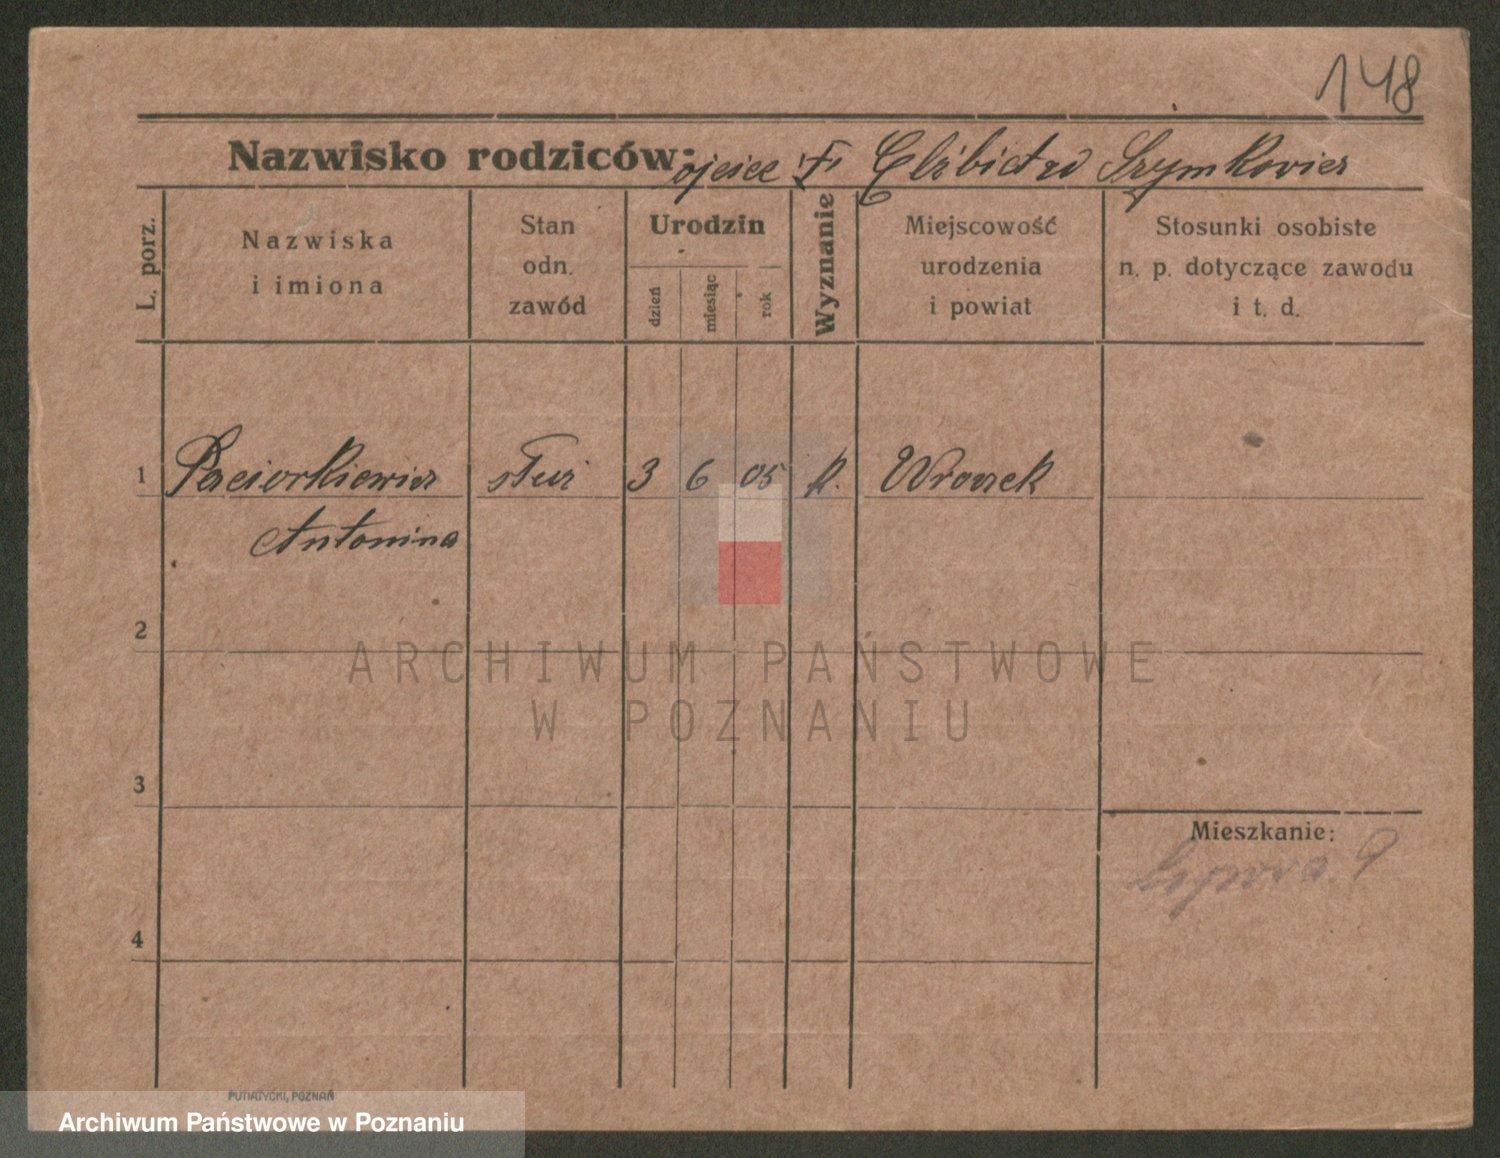 148
Nazwisko rodziców: ojciec F Elżbieta Szymkowicz
L. porz.
Nazwiska
i imiona
Stan
odn.
zawód
Urodzin
dzień
miesiąc
rok
Wyznanie
Miejscowość
urodzenia
i powiat
Stosunki osobiste
n. p. dotyczące zawodu
i t. d.
1 Paciorkiewicz służ 3 6 05 k.
Antonina
2
ARCHIWUM PAŃSTWOWE
W POZNANIU
3
Mieszkanie:
9
4
PUTIATYCKI, POZNAŃ
Archiwum Państwowe w Poznaniu